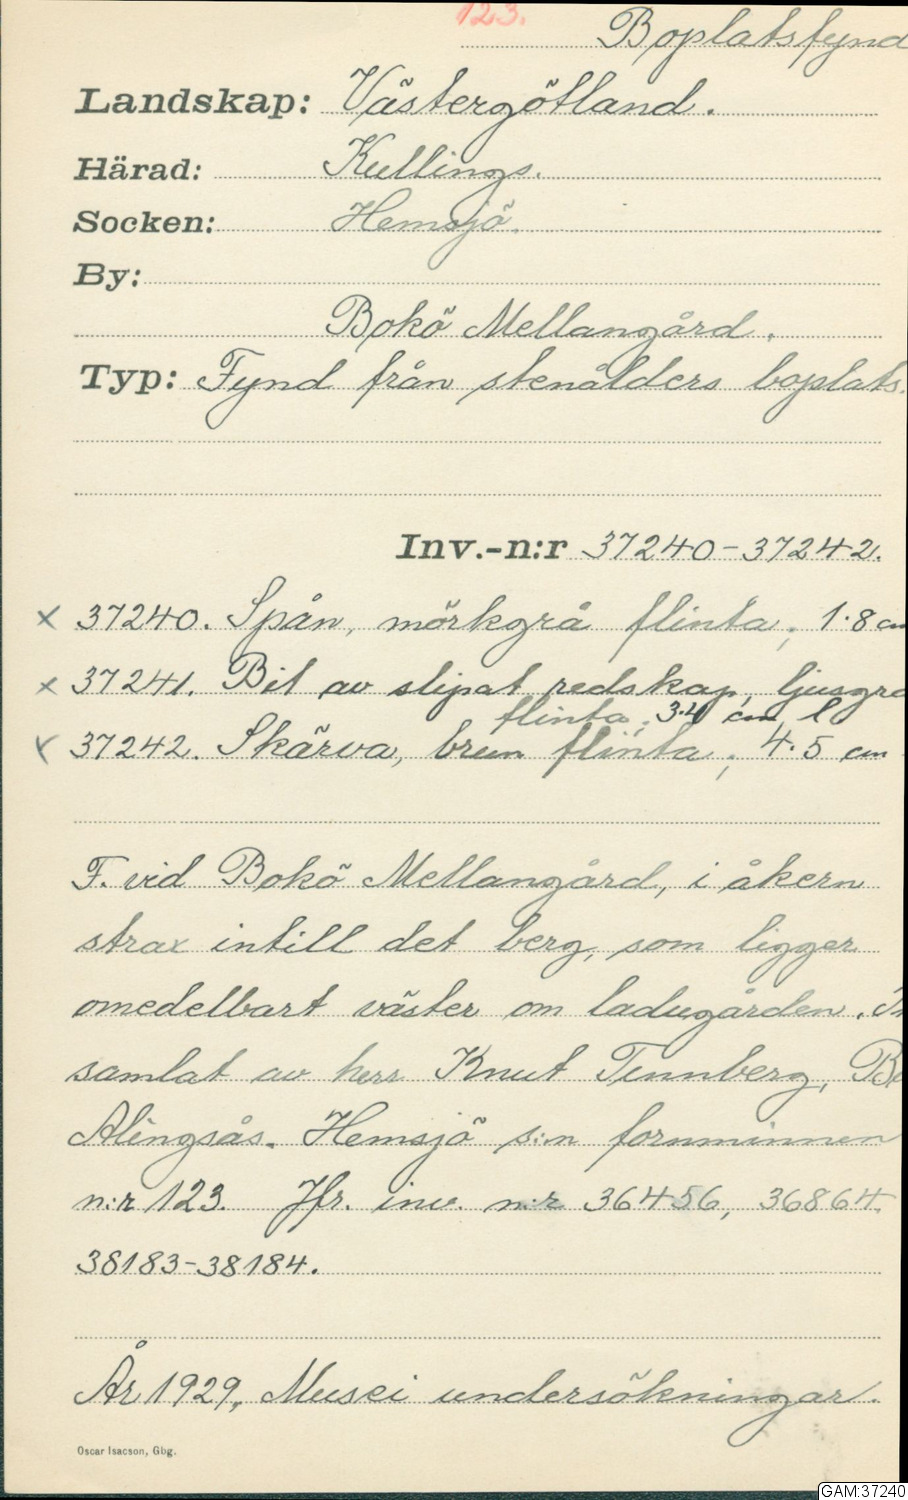 123.
Boplatsfynd
Landskap: Västergötland.
Härad: Kullings.
Socken: Hemsjö.
By:
Bokö Mellangård.
Typ: Fynd från stenålders boplats.
Inv.-n:r 37240-37242.
x 37240. Spån, mörkgrå flinta; 1.8 cm
x 37241. Bit av slipat redskap, ljusgrå
flinta; 3.4 cm l
x 37242. Skärva, brun flinta; 4.5 cm
F. vid Bokö Mellangård, i åkern
strax intill det berg, som ligger
omedelbart väster om ladugården. In
samlat av herr Knut Tennberg, Bo
Alingsås. Hemsjö s:n fornminnen
n:r 123. Jfr. inv. n:r 36456, 36864
38183-38184.
År 1929, Musei undersökningar.
Oscar Isacson, Gbg.
GAM:37240